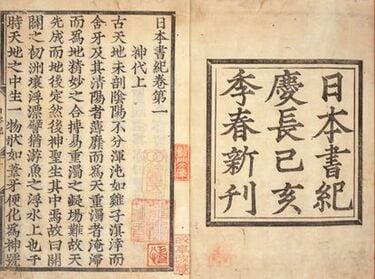 日本書紀
慶長己亥
季春新刊
日本書紀卷第一
神代上
古天地未剖陰陽不分渾沌如雞子溟涬而
含牙及其清陽者薄靡而為天重濁者淹滯
而為地精妙之合摶易重濁之凝場難故天
先成而地後定然後神聖生其中焉故曰開
闢之初洲壤浮漂譬猶游魚之浮水上也于
時天地之中生一物狀如葦牙便化為神號